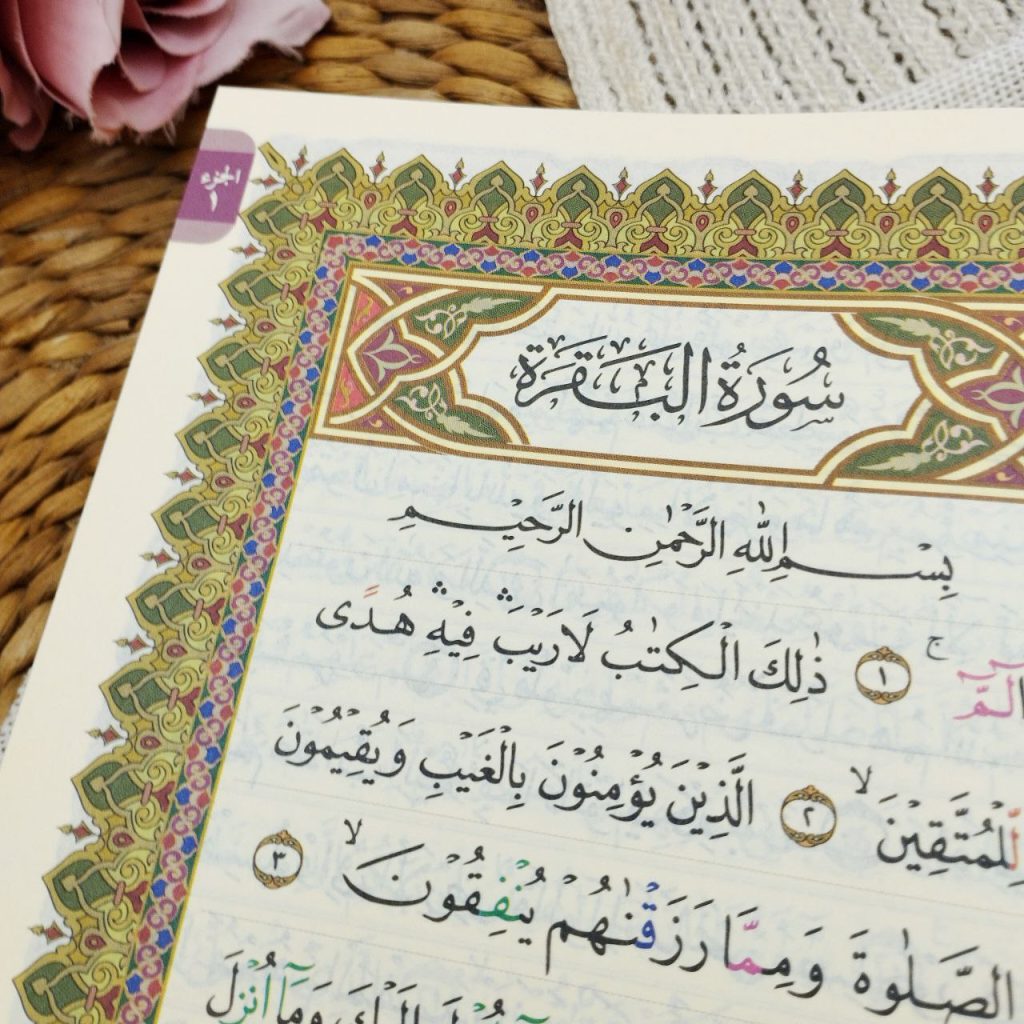 الجزء
١
سُورَةُ الْبَقَرَةِ
بِسْمِ اللّٰهِ الرَّحْمٰنِ الرَّحِيْمِ
الٓمّٓ ۚ ١ ذٰلِكَ الْكِتٰبُ لَا رَيْبَ ۛ فِيْهِ ۛ هُدًى
لِّلْمُتَّقِيْنَ ۙ ٢ الَّذِيْنَ يُؤْمِنُوْنَ بِالْغَيْبِ وَيُقِيْمُوْنَ
الصَّلٰوةَ وَمِمَّا رَزَقْنٰهُمْ يُنْفِقُوْنَ ۙ ٣
اِلَيْكَ وَمَآ اُنْزِلَ